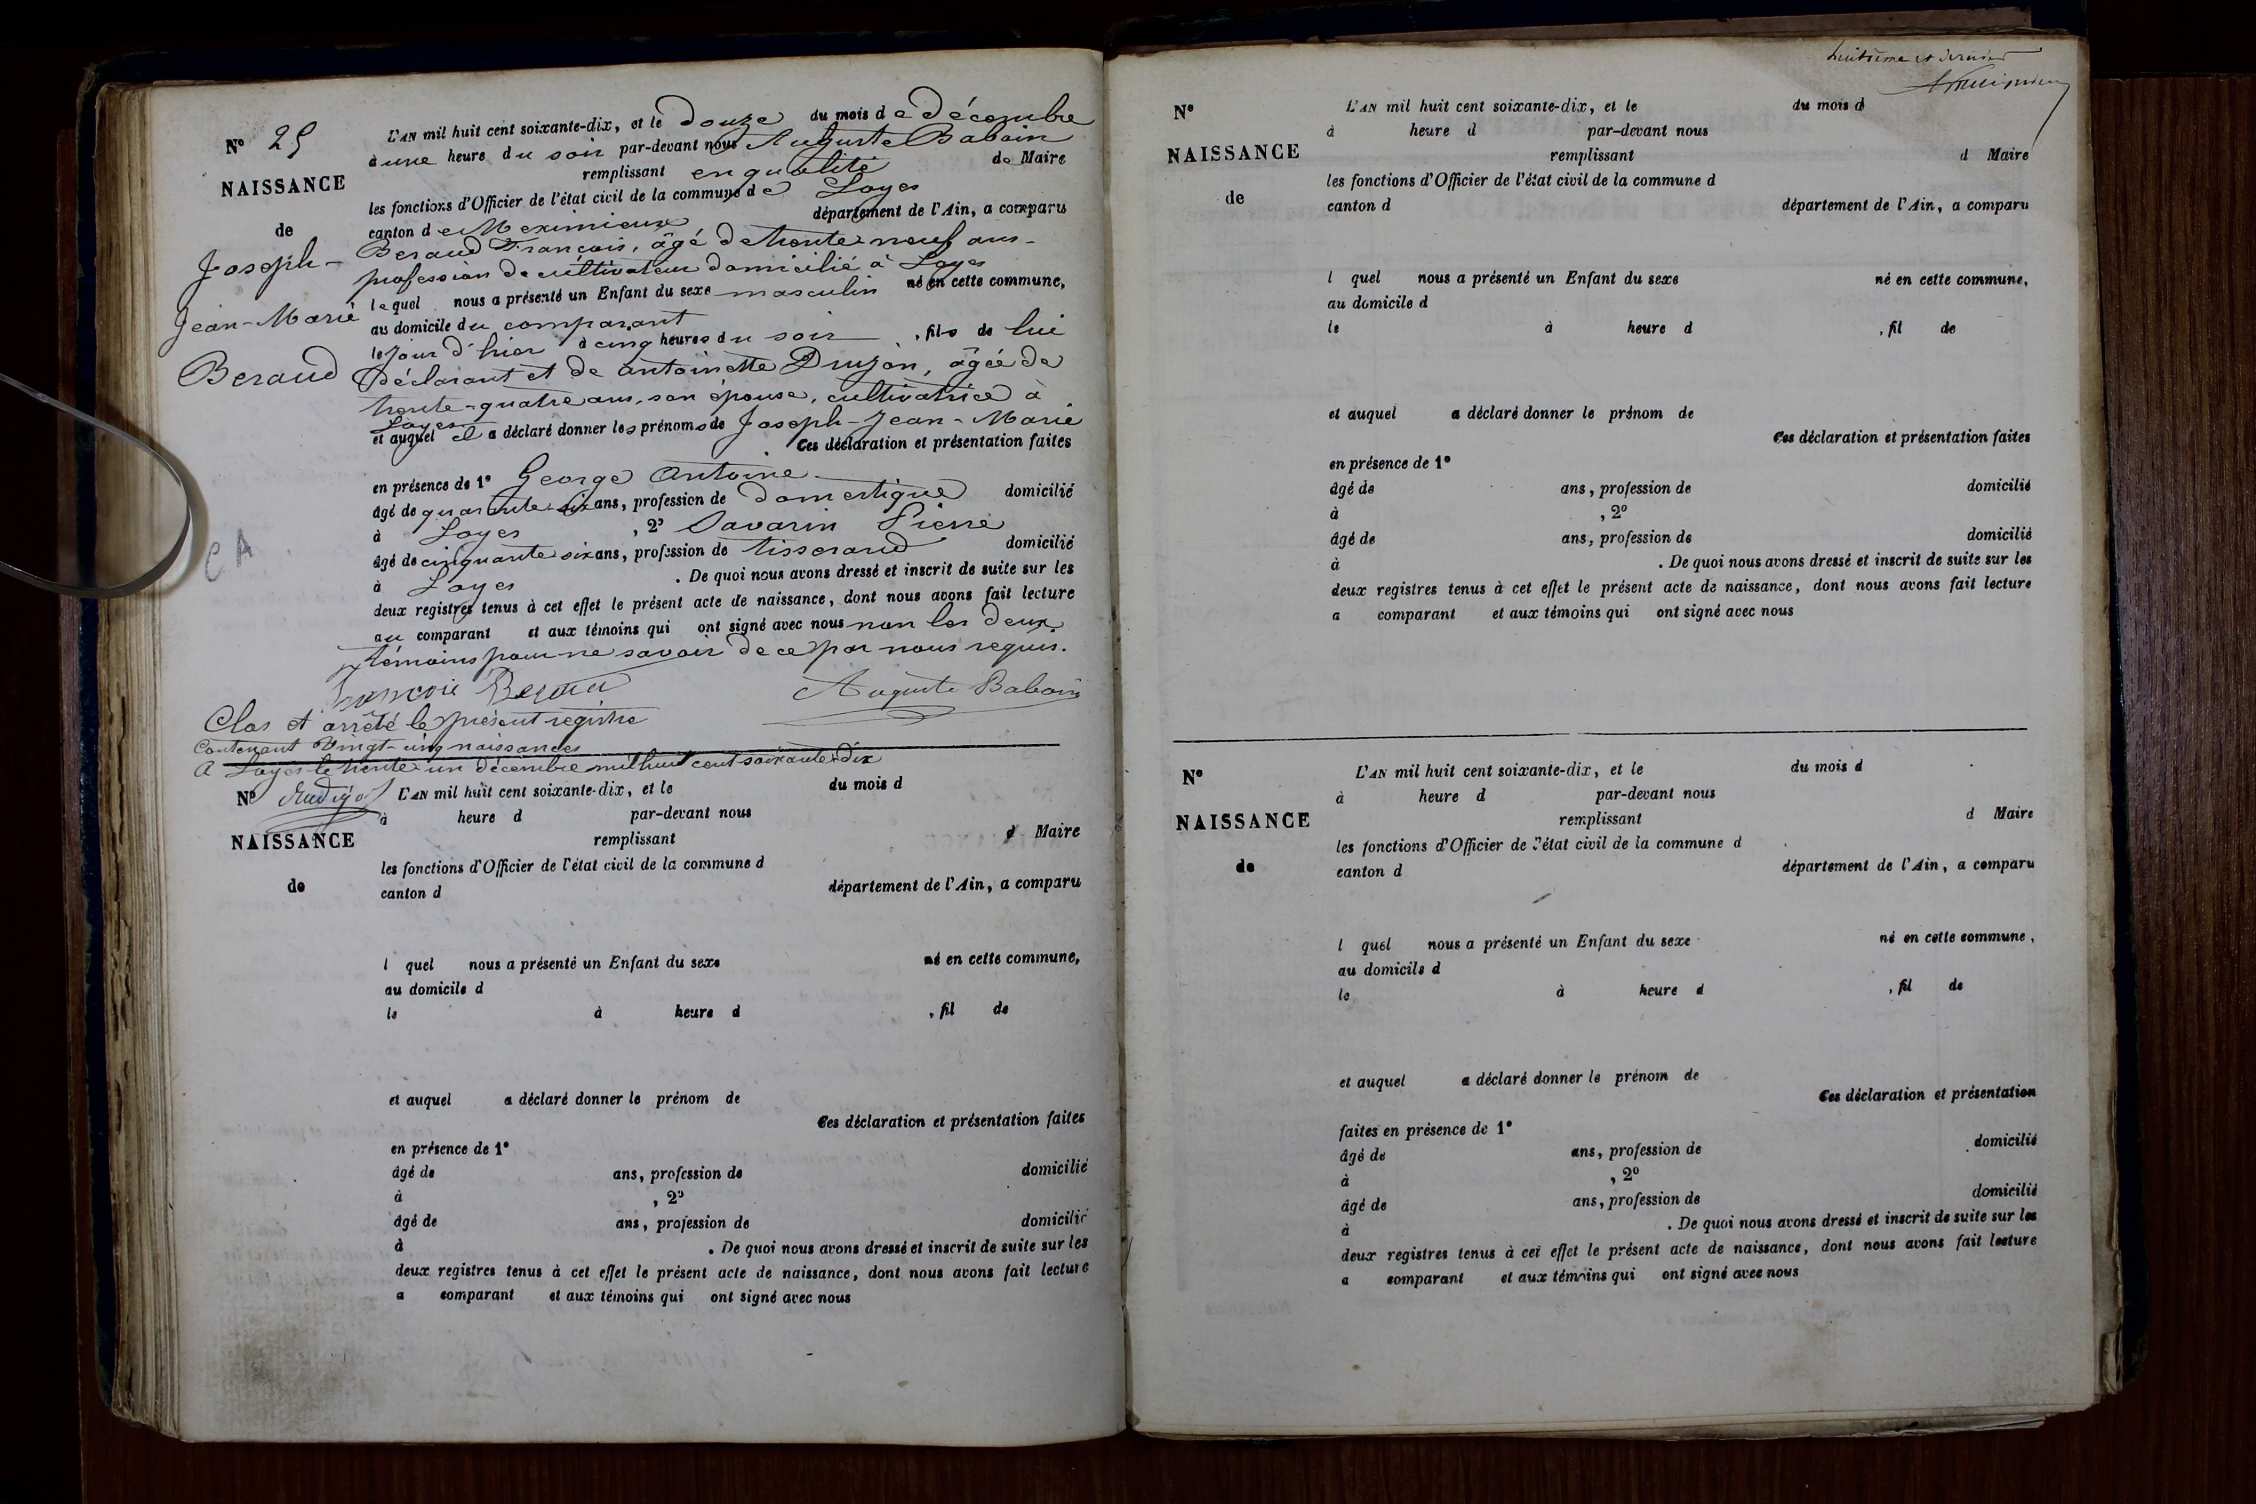 N° 25
NAISSANCE
de
Joseph-
Jean-Marie
Beraud
L'AN mil huit cent soixante-dix, et le douze du mois de décembre
à une heure du soir par-devant nous Auguste Baboin
remplissant en qualité de Maire
les fonctions d'Officier de l'état civil de la commune de Loyes
canton de Meximieux département de l'Ain, a comparu
Beraud François, âgé de trente-neuf ans-
profession de cultivateur domicilié à Loyes
lequel nous a présenté un Enfant du sexe masculin né en cette commune,
au domicile du comparant
le jour d'hier à cinq heures du soir , fils de lui
déclarant et de Antoinette Druzon, âgée de
trente-quatre ans, son épouse, cultivatrice à
Loyes
et auquel il a déclaré donner les prénoms de Joseph-Jean-Marie
Ces déclaration et présentation faites
en présence de 1° George Antoine
âgé de quarante six ans, profession de domestique domicilié
à Loyes , 2° Savarin Pierre
âgé de cinquante six ans, profession de tisserand domicilié
à Loyes . De quoi nous avons dressé et inscrit de suite sur les
deux registres tenus à cet effet le présent acte de naissance, dont nous avons fait lecture
au comparant et aux témoins qui ont signé avec nous non les deux
témoins pour ne savoir de ce par nous requis.
François Beraud Auguste Baboin
Clos et arrêté le présent registre
Contenant Vingt-cinq naissances
A Loyes le trente-un décembre mil huit cent soixante-dix
N°
NAISSANCE
de
L'AN mil huit cent soixante-dix, et le du mois d
à heure d par-devant nous
remplissant d Maire
les fonctions d'Officier de l'état civil de la commune d
canton d département de l'Ain, a comparu
l quel nous a présenté un Enfant du sexe né en cette commune,
au domicile d
le à heure d , fil de
et auquel a déclaré donner le prénom de
Ces déclaration et présentation faites
en présence de 1°
âgé de ans, profession de domicilié
à , 2°
âgé de ans, profession de domicilié
à . De quoi nous avons dressé et inscrit de suite sur les
deux registres tenus à cet effet le présent acte de naissance, dont nous avons fait lecture
a comparant et aux témoins qui ont signé avec nous
CA
huitième et dernier
N°
NAISSANCE
de
L'AN mil huit cent soixante-dix, et le du mois d
à heure d par-devant nous
remplissant d Maire
les fonctions d'Officier de l'état civil de la commune d
canton d département de l'Ain, a comparu
l quel nous a présenté un Enfant du sexe né en cette commune,
au domicile d
le à heure d , fil de
et auquel a déclaré donner le prénom de
Ces déclaration et présentation faites
en présence de 1°
âgé de ans, profession de domicilié
à , 2°
âgé de ans, profession de domicilié
à . De quoi nous avons dressé et inscrit de suite sur les
deux registres tenus à cet effet le présent acte de naissance, dont nous avons fait lecture
a comparant et aux témoins qui ont signé avec nous
N°
NAISSANCE
de
L'AN mil huit cent soixante-dix, et le du mois d
à heure d par-devant nous
remplissant d Maire
les fonctions d'Officier de l'état civil de la commune d
canton d département de l'Ain, a comparu
l quel nous a présenté un Enfant du sexe né en cette commune,
au domicile d
le à heure d , fil de
et auquel a déclaré donner le prénom de
Ces déclaration et présentation
faites en présence de 1°
âgé de ans, profession de domicilié
à , 2°
âgé de ans, profession de domicilié
à . De quoi nous avons dressé et inscrit de suite sur les
deux registres tenus à cet effet le présent acte de naissance, dont nous avons fait lecture
a comparant et aux témoins qui ont signé avec nous